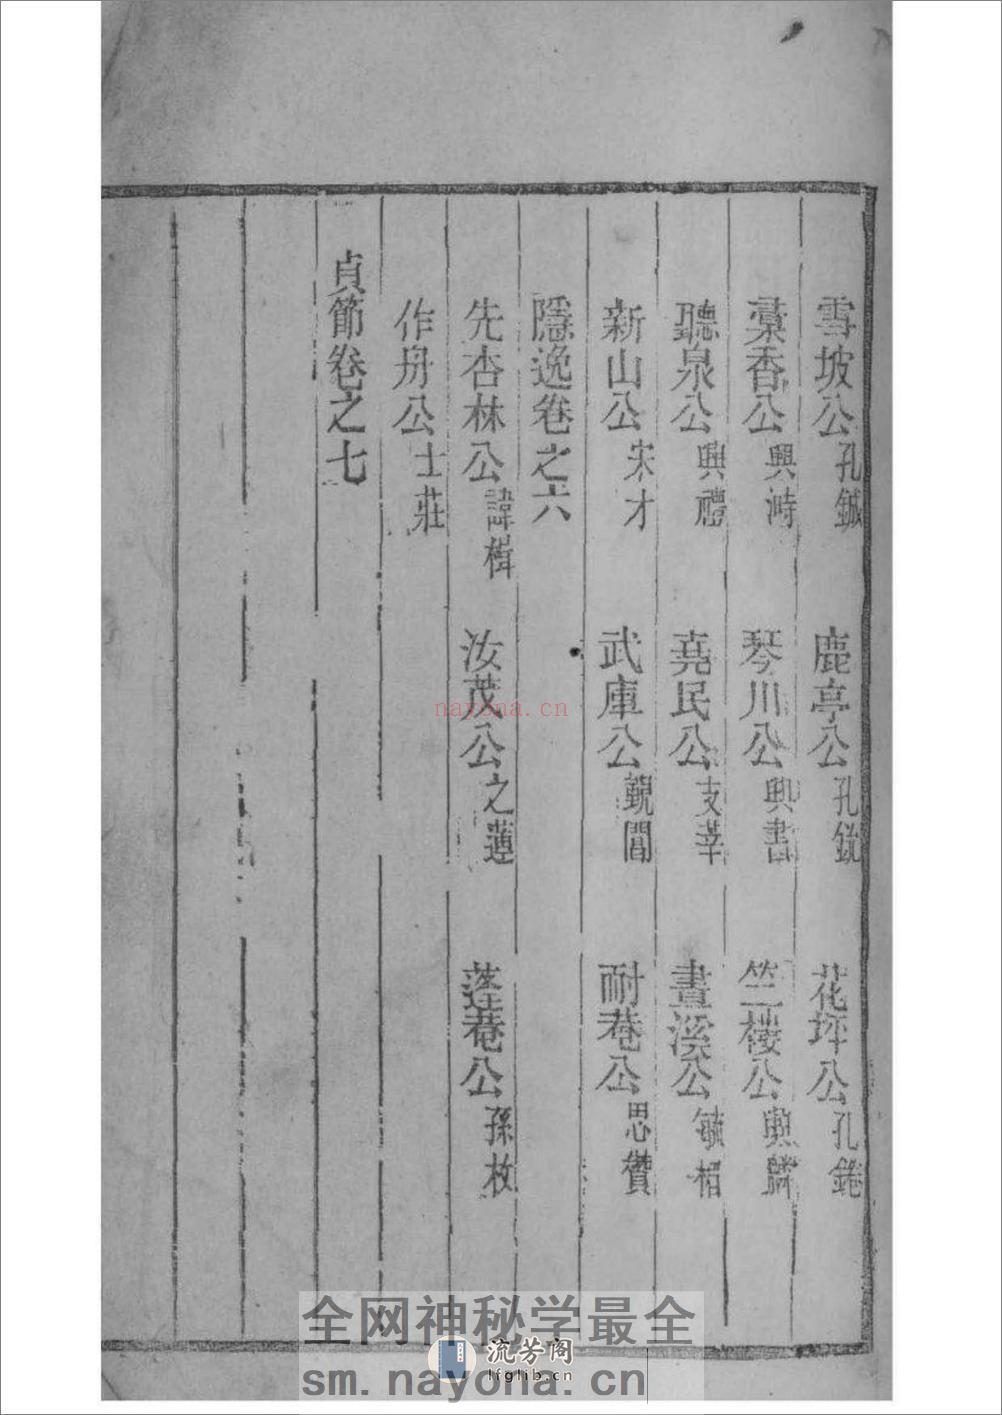 雪坡公 孔鍼 鹿亭公 孔 花坪公 孔
蘽香公 興 琴川公 興書 竺楼公 興麟
聽泉公 興禮 堯民公 支莘 畫溪公 毓栢
新山公 宋才 武庫公 觀閶 耐菴公 思儹
隱逸卷之六
先杏林公 諱楫 汝茂公 之蓮 蓬菴公 孫枚
作舟公 士莊
贞節卷之七
nayona.cn
全网神秘学最全
流芳阁
lfglib.cn
sm.nayona.cn